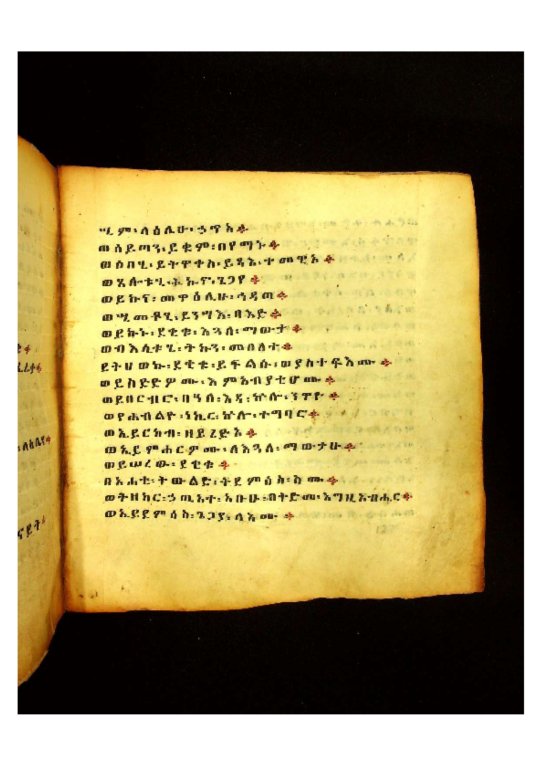 ሢም፡ላዕሌሁ፡ኃጥአ።
ወሰይጣን፡ይቁም፡በየማኑ።
ወሶበሂ፡ይትዋቀስ፡ይጻእ፡ተመዊኦ።
ወጸሎቱሂ፡ትኩኖ፡ጌጋየ።
ወይኩና፡መዋዕሊሁ፡ኅዳጠ።
ወሢመቶሂ፡ይንሣእ፡ባእድ።
ወይኩኑ፡ደቂቁ፡እጓለ፡ማውታ።
ወብእሲቱሂ፡ትኩን፡መበለተ።
ይትሀወኩ፡ደቂቁ፡ይፍልሱ፡ወያስተፍእሙ።
ወይስድድዎሙ፡እምአብያቲሆሙ።
ወይበርብሮ፡በዓለ፡እዳ፡ኵሎ፡ንዋዮ።
ወየሐብልዮ፡ነኪር፡ኵሎ፡ተግባሮ።
ወኢይርከብ፡ዘይረድኦ።
ወኢይምሐርዎሙ፡ለእጓለ፡ማውታሁ።
ወይሠረው፡ደቂቁ።
በአሐቲ፡ትውልድ፡ትደምሰስ፡ስሙ።
ወትዘከር፡ኃጢአተ፡አቡሁ፡በቅድመ፡እግዚአብሔር።
ወኢይደምሰስ፡ጌጋያ፡ለእሙ።